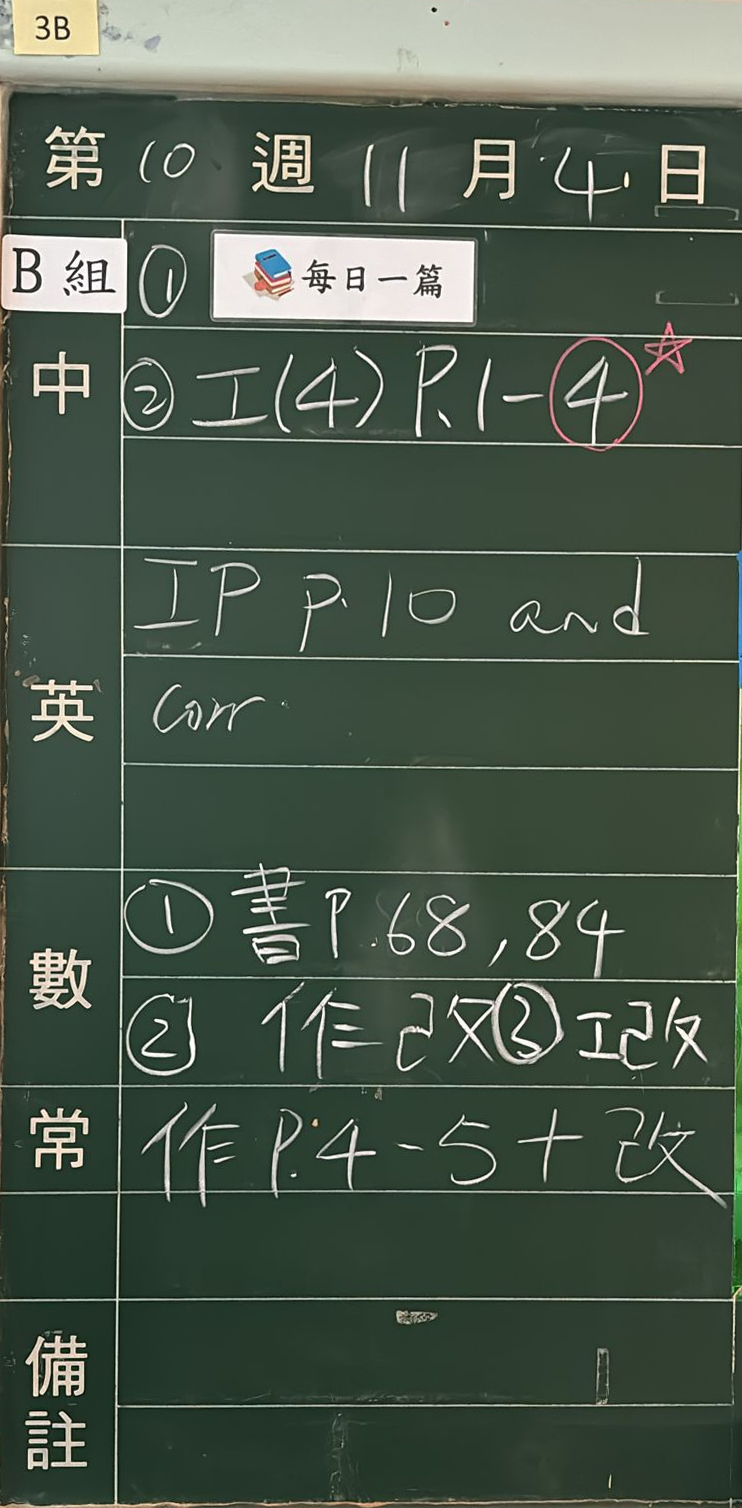 3B
第 10 週 11 月 4 日
B 組 ① 每日一篇
中 ② 工(4) P.1-4
英 IP p.10 and
corr
數 ① 書 P.68, 84
② 作改 ③ 工改
常 作 P.4-5+改
備註